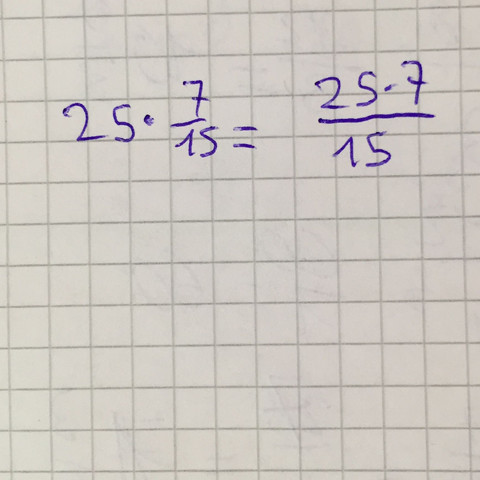 25 · 7/15 = 25·7/15